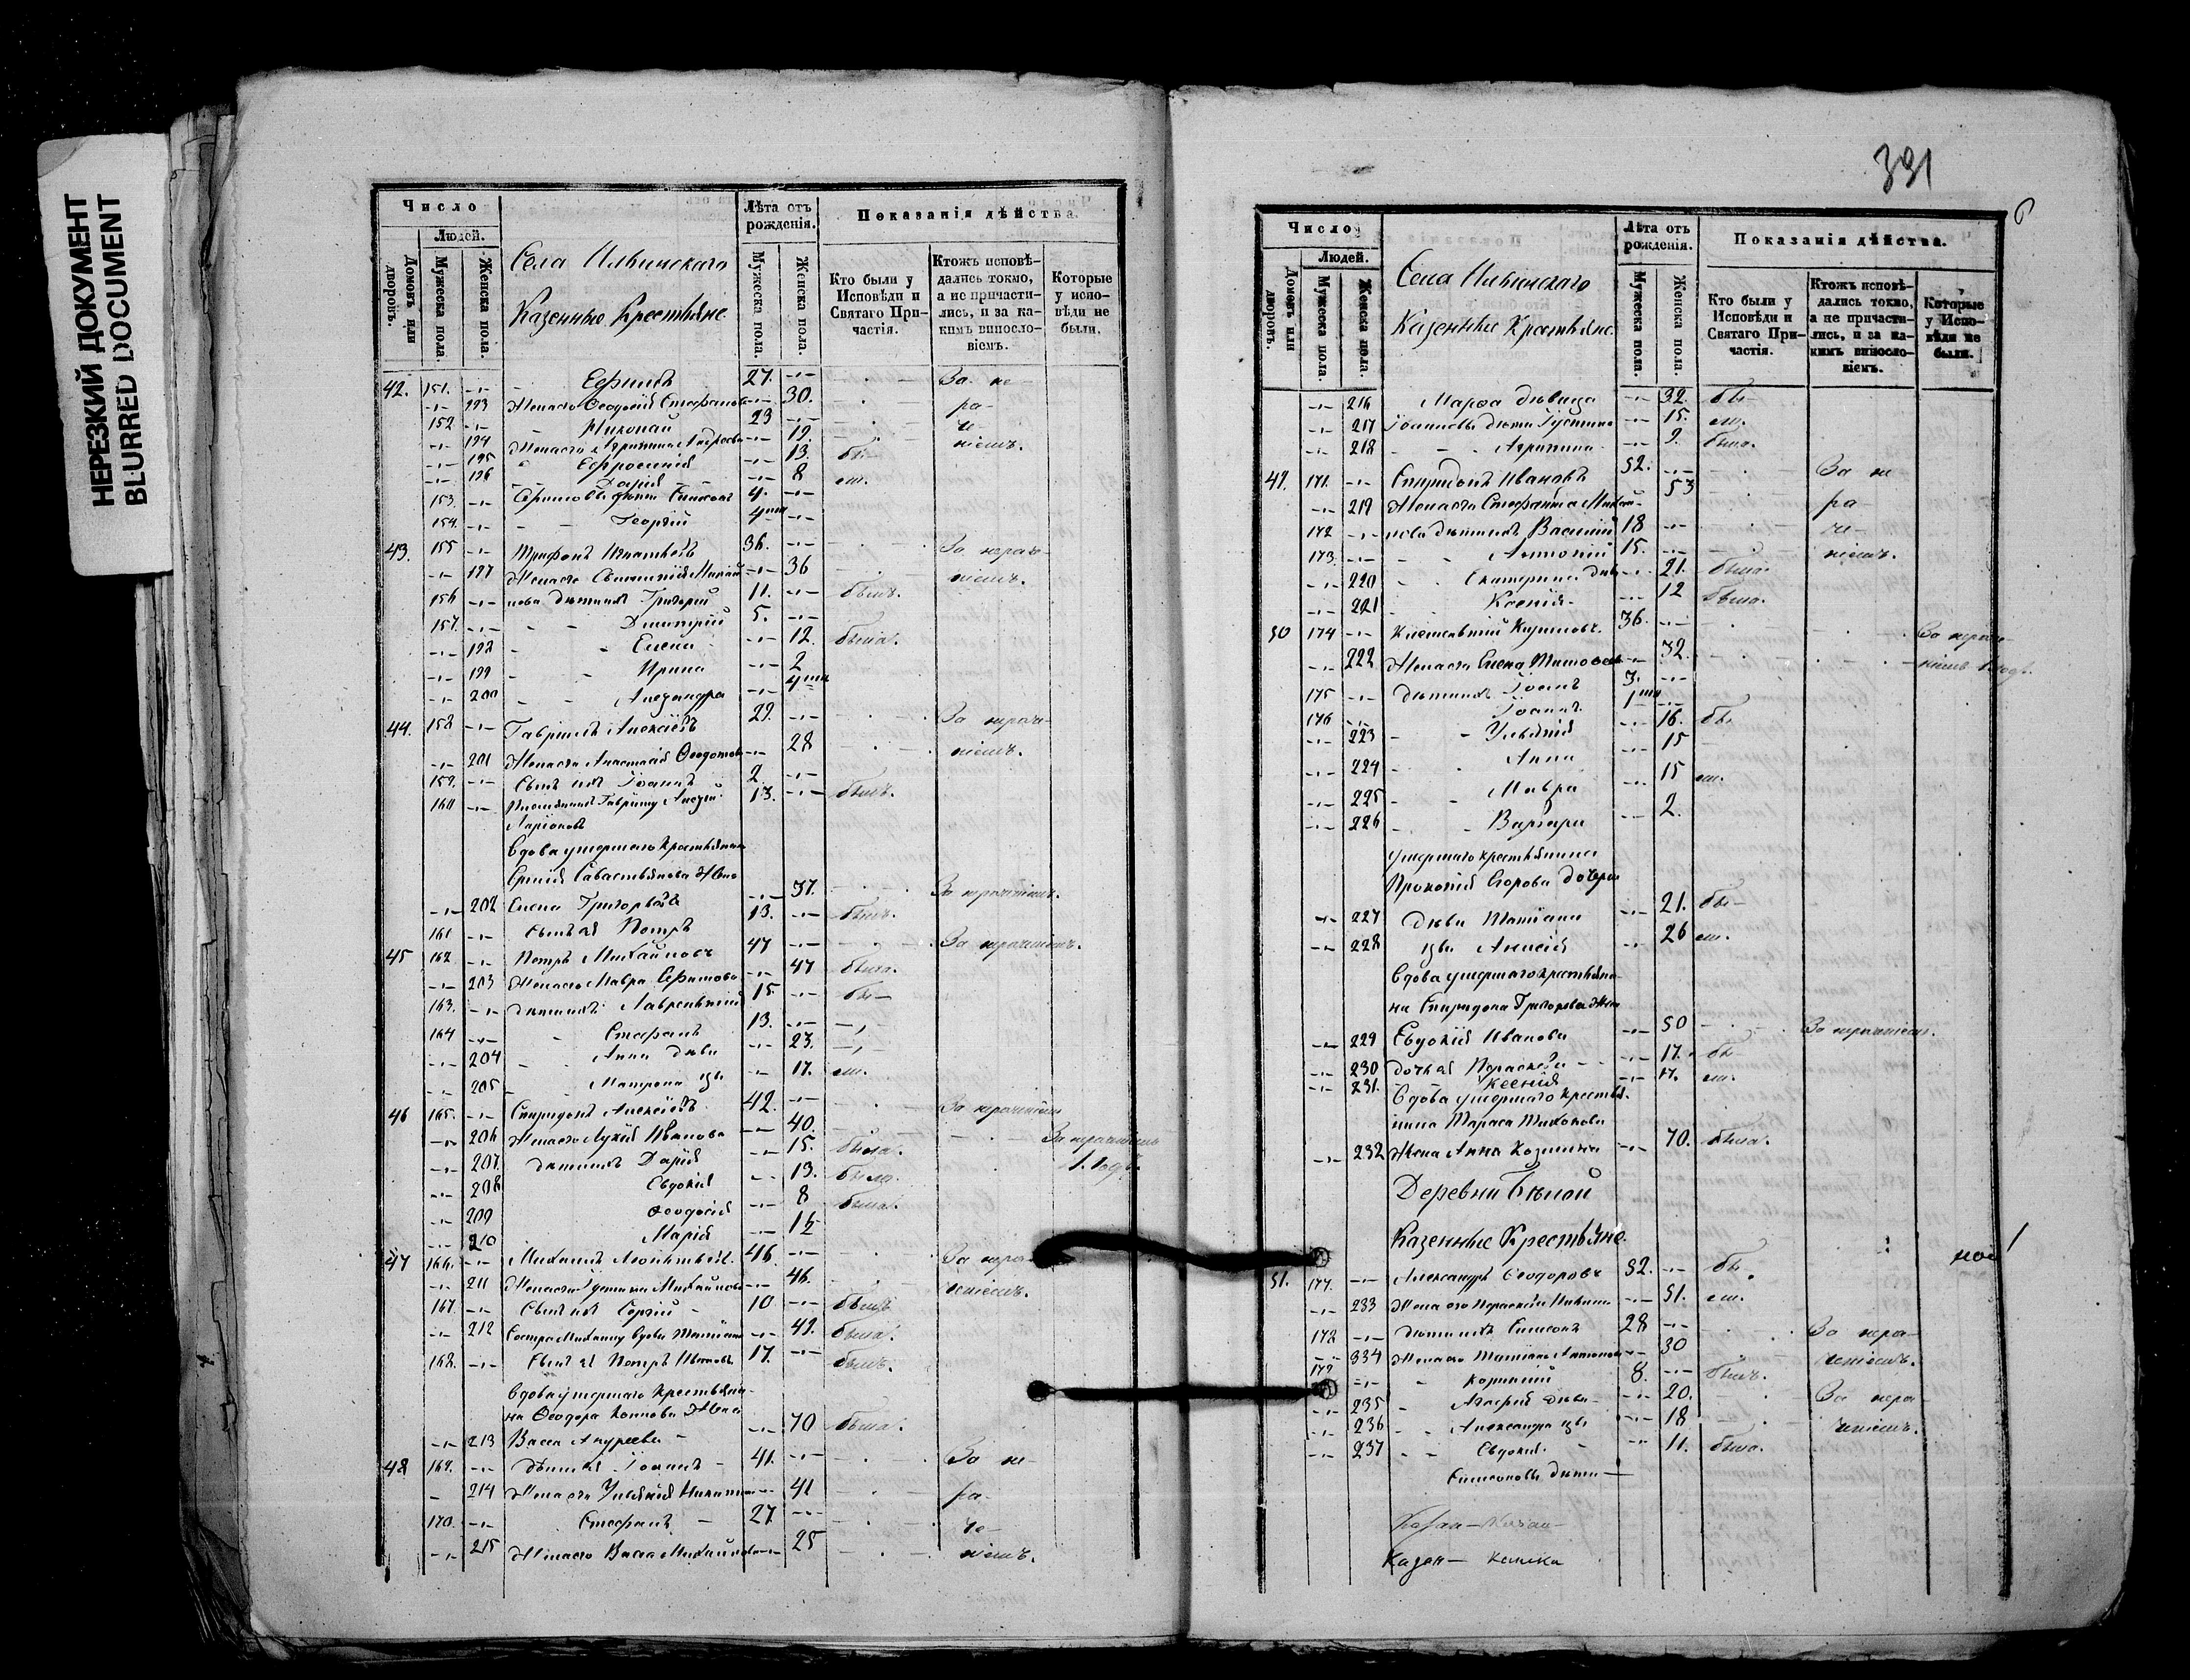 НЕРЕЗКИЙ ДОКУМЕНТ
BLURRED DOCUMENT
Число
Людей.
Домовъ или дворовъ.
Мужеска пола.
Женска пола.
Села Ильинскаго
Казенные Крестьяне.
Лѣта отъ рожденія.
Мужеска пола.
Женска пола.
Показанія дѣйства.
Кто были у Исповѣди и Святаго Причастія.
Ктожъ исповѣдались токмо, а не причастились, и за какимъ винословіемъ.
Которые у исповѣди не были.
42. 151. Ефимъ 27. За не-
193 Жена его Феодосія Стефанова 30. ра-
152 Николай 23 че-
194 Жена его Агрипина Андреева 19. ніемъ.
195 Ефросинія 13. бы-
196 Дарія 8 ли.
153. Ефимовы дѣти Симеонъ 4.
154. Георгій
43. 155 Трифонъ Игнатьевъ 36. За нераче-
197 Жена его 36 ніемъ.
156 дѣти ихъ Григорій 11. былъ.
157. Димитрій 5.
198 Елена 12. была.
199 Ирина 2
200 Александра
44. 158 Гавріилъ Алексѣевъ 29. За нераче-
201 Жена его Анастасія Феодотова 28 ніемъ.
159. Сынъ ихъ Іоаннъ 2.
160 13. былъ.
Ларіоновъ
Вдова умершаго крестьянина
Савастьянова Жена
202 Елена Григорьева 37. За нераченіемъ.
161 Сынъ ея Петръ 13. былъ.
45 162 Петръ Михайловъ 47 За нераченіемъ.
203 Жена его Мавра Ефимова 47 была.
163. дѣти ихъ Лаврентій 15. бы-
164 Стефанъ 13.
204 Анна дѣва 23.
205 Матрона 17. ли.
46 165. Спиридонъ Алексѣевъ 42. За нераченіемъ
206 Жена его Лукія Иванова 40. За нераченіемъ
207. дѣти ихъ Дарія 15. была. 1. годъ.
208 Евдокія 13. была.
209 Феодосія 8 была.
210 Марія 1½
47 166. Михаилъ Леонтьевъ. 46. За нера-
211 Жена его Іустина Михайлова 46. ченіемъ.
167. Сынъ ихъ Сергій 10 былъ
212 Сестра Михаилу вдова Татіана 49. была.
168. Сынъ ея Петръ Ивановъ 17. былъ.
Вдова умершаго Крестьяни-
на Феодора Жена
213 Васса Андреева 70 была.
48 169. дѣти ея Іоаннъ 41. За не-
214 Жена его Уліянія Никитина 41 ра-
170. Стефанъ 27. че-
215 Жена его Васса Михайлова 25 ніемъ.
391
6
Число
Людей.
Домовъ или дворовъ.
Мужеска пола.
Женска пола.
Села Ильинскаго
Казенные Крестьяне.
Лѣта отъ рожденія.
Мужеска пола.
Женска пола.
Показанія дѣйства.
Кто были у Исповѣди и Святаго Причастія.
Ктожъ исповѣдались токмо, а не причастились, и за какимъ винословіемъ.
Которые у Исповѣди не были.
216 Марѳа дѣвица 32. бы-
217 Іоанновы дѣти Іустина 15. ли.
218 Агрипина 9. была.
49. 171. Спиридонъ Ивановъ 52. За не
219 Жена его Стефанида Михай- 53 ра-
172 лова дѣти ихъ Василій 18 че-
173. Антоній 15. ніемъ.
220 Екатерина дѣва 21. была.
221 Ксенія 12 была.
50 174 Кириловъ. 36. За нераче-
222 Жена его Елена Тимофеева 32. ніемъ 1 годъ.
175 дѣти ихъ Іоаннъ 3.
176 Іоаннъ
223 Уліянія 16. бы
224 Анна 15
225 Мавра 15 ли.
226 Варвара 2.
умершаго крестьянина
Прокопія Егорова дочери
227 дѣва Татіана 21. бы-
228 Анисія 26 ли.
Вдова умершаго крестьяни-
на Спиридона Григорьева Жена
229 Евдокія Иванова 50 За нераченіемъ.
230 дочь ея Параскева 17. бы-
231. Ксенія 17. ли.
Вдова умершаго крестья-
нина Тараса Тихонова
232 Жена Анна Козмина 70. была.
Деревни Бѣлой
Казенные Крестьяне.
51. 177. Александръ Феодоровъ 52. бы
233 Жена его Параскева 51. ли.
178 дѣти ихъ Симеонъ 28 За нера-
334 Жена его Татіана Антонова 30 ченіемъ.
179 Корнилій 8. былъ.
235 Агафія дѣва 20. За нера-
236 Александра 18 ченіемъ.
237 Евдокія 11. была.
Симеоновы дѣти
Казен-